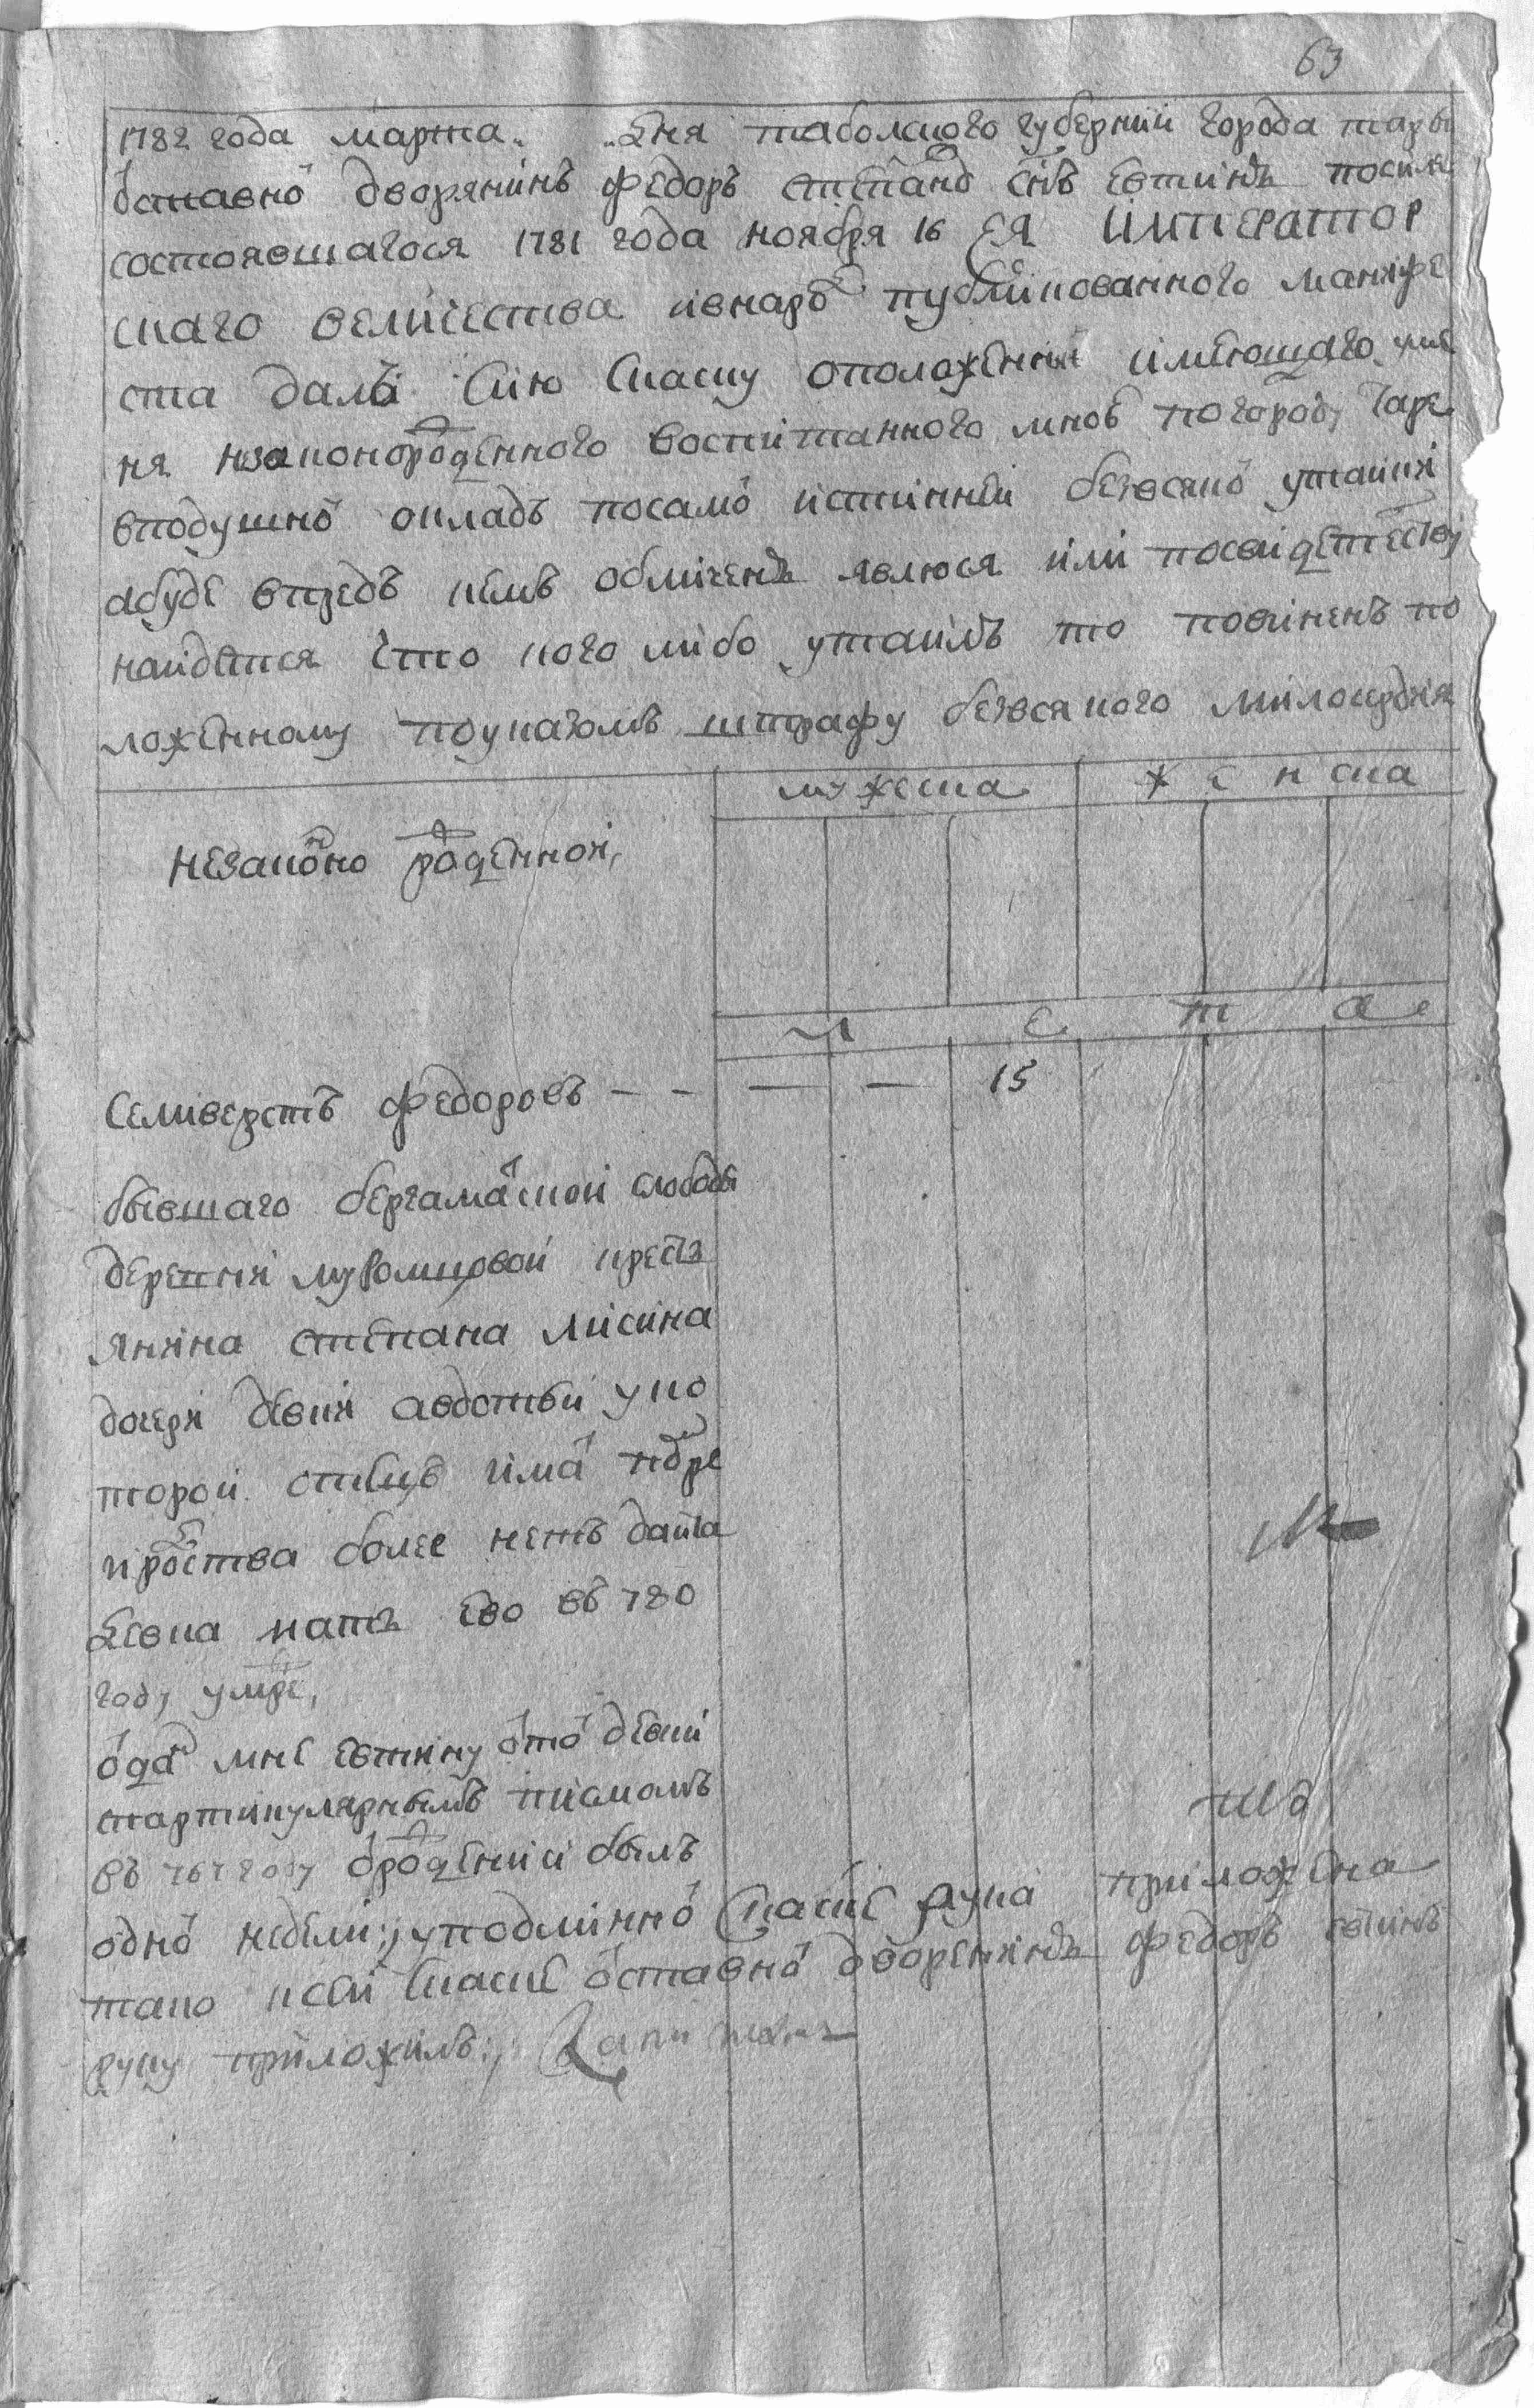 63
1782 года марта „ „ дня таболского губернии города тары
оставно дворянинъ федоръ степано снъ евтинъ посиле
состоявшагося 1781 года ноября 16 ея император
скаго величества ивнаро публикованного манифе
ста далъ сию скаску оположении имеющаго уме
ня незаконорожденного воспитанного мною погороду таре
вподушно окладъ посамо истинне безвсяко утаики
абуде впредь кемъ обличенъ явлюся или посвидетелству
найдется что кого либо утаилъ то повиненъ по
ложенному поуказомъ штрафу безвсякого милосердия
мужеска женска
незаконно рожденной,
л е т а
Селиверстъ федоровъ – – — — 15
бывшаго бергамацкой слободы
деревни муромцовой крестя
янина степана лисина
дочери девки авдотьи уко
торой отецъ има помре
иродства более нетъ датга
девка мать ево въ 780
году умре,
отда мне евтину ото девки
спартикулярнымъ писмомъ
въ 767 году орождении былъ
одно недели:, уподлинно скаске рука приложена
тако ксей скаске оставно дворенинъ федоръ евтинъ
руку приложилъ:,